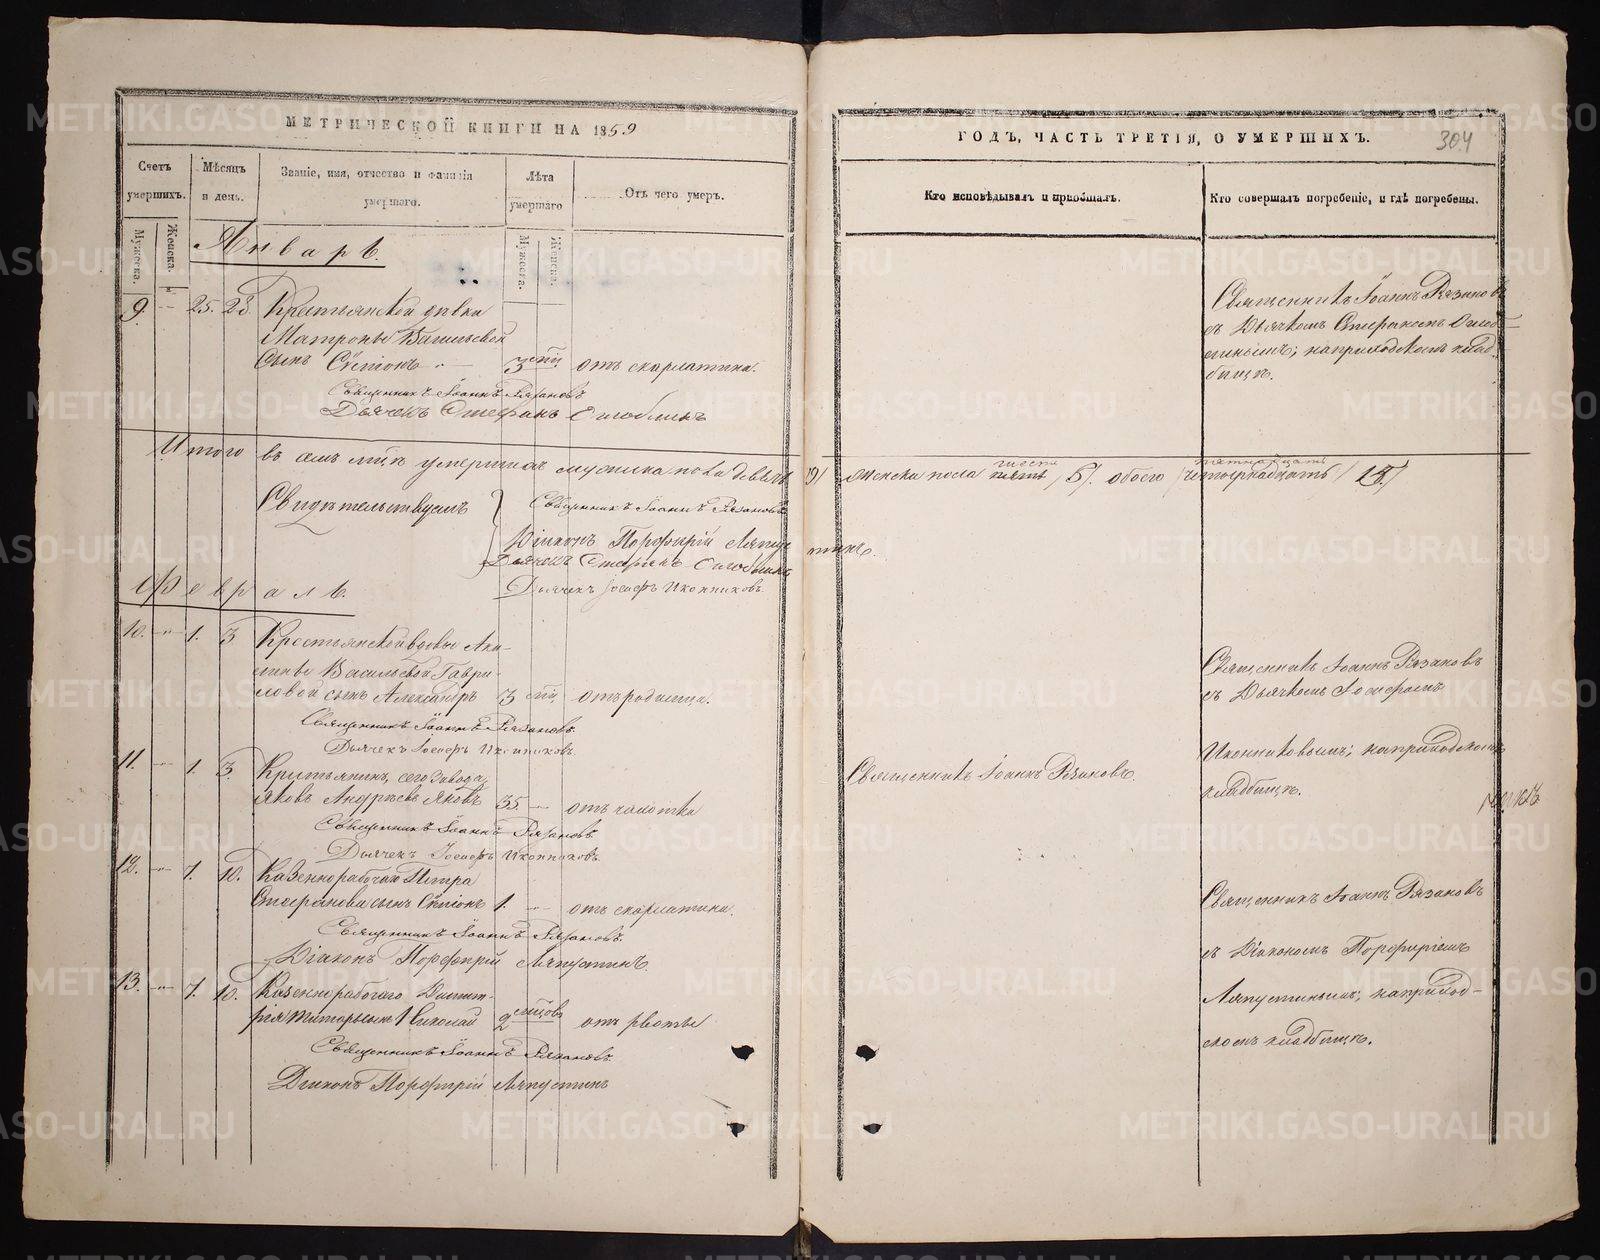 МЕТРИЧЕСКОЙ КНИГИ НА 1859
Счетъ умершихъ.
Мужеска.
Женска.
Мѣсяцъ и день.
Званіе, имя, отчество и фамилія умершаго.
Лѣта умершаго
Мужеска.
Женска.
Отъ чего умеръ.
Январь.
9. 25. 28. Крестьянской дѣвки
Матроны Васильевой
сынъ 3 отъ скарлатины.
Священникъ Іоаннъ Рязановъ
Дьячекъ Стефанъ
Итого въ семъ м-цѣ умершихъ мужеска пола девять
Свидѣтельствуемъ Священникъ Іоаннъ Рязановъ
Діаконъ Порфирій Ляпустинъ.
Дьячекъ Стефанъ
Дьячекъ Іосифъ Иконниковъ.
Февраль.
10. 1. 3 Крестьянской вдовы Аки-
лины Васильевой Гаври-
ловой сынъ Александръ 3 отъ родимца.
Священникъ Іоаннъ Рязановъ.
Дьячекъ Іосифъ Иконниковъ.
11. 1. 3. Крестьянинъ сего завода
Яковъ Андреевъ 35 отъ чахотки
Священникъ Іоаннъ Рязановъ.
Дьячекъ Іосифъ Иконниковъ.
12. 7. 10. Казеннорабочаго Петра
Стефанова сынъ 1. отъ скарлатины.
Священникъ Іоаннъ Рязановъ.
Діаконъ Порфирій Ляпустинъ.
13. 7. 10. Казеннорабочаго Димит-
рія сынъ Николай 2 отъ рвоты
Священникъ Іоаннъ Рязановъ.
Діаконъ Порфирій Ляпустинъ
ГОДЪ, ЧАСТЬ ТРЕТІЯ, О УМЕРШИХЪ.
304
Кто исповѣдывалъ и пріобщалъ.
Кто совершалъ погребеніе, и гдѣ погребены.
Священникъ Іоаннъ Рязановъ
съ Дьячкомъ Стефаномъ
на приходскомъ клад-
бищѣ.
/9/ женска пола шесть пять /5/. обоего пятнадцать четырнадцать
Священникъ Іоаннъ Рязановъ
съ Дьячкомъ Іосифомъ
Иконниковымъ; на приходскомъ
кладбищѣ.
Священникъ Іоаннъ Рязановъ
Священникъ Іоаннъ Рязановъ
съ Діакономъ Порфиріемъ
Ляпустинымъ; на приход-
скомъ кладбищѣ.
METRIKI.GASO-URAL.RU